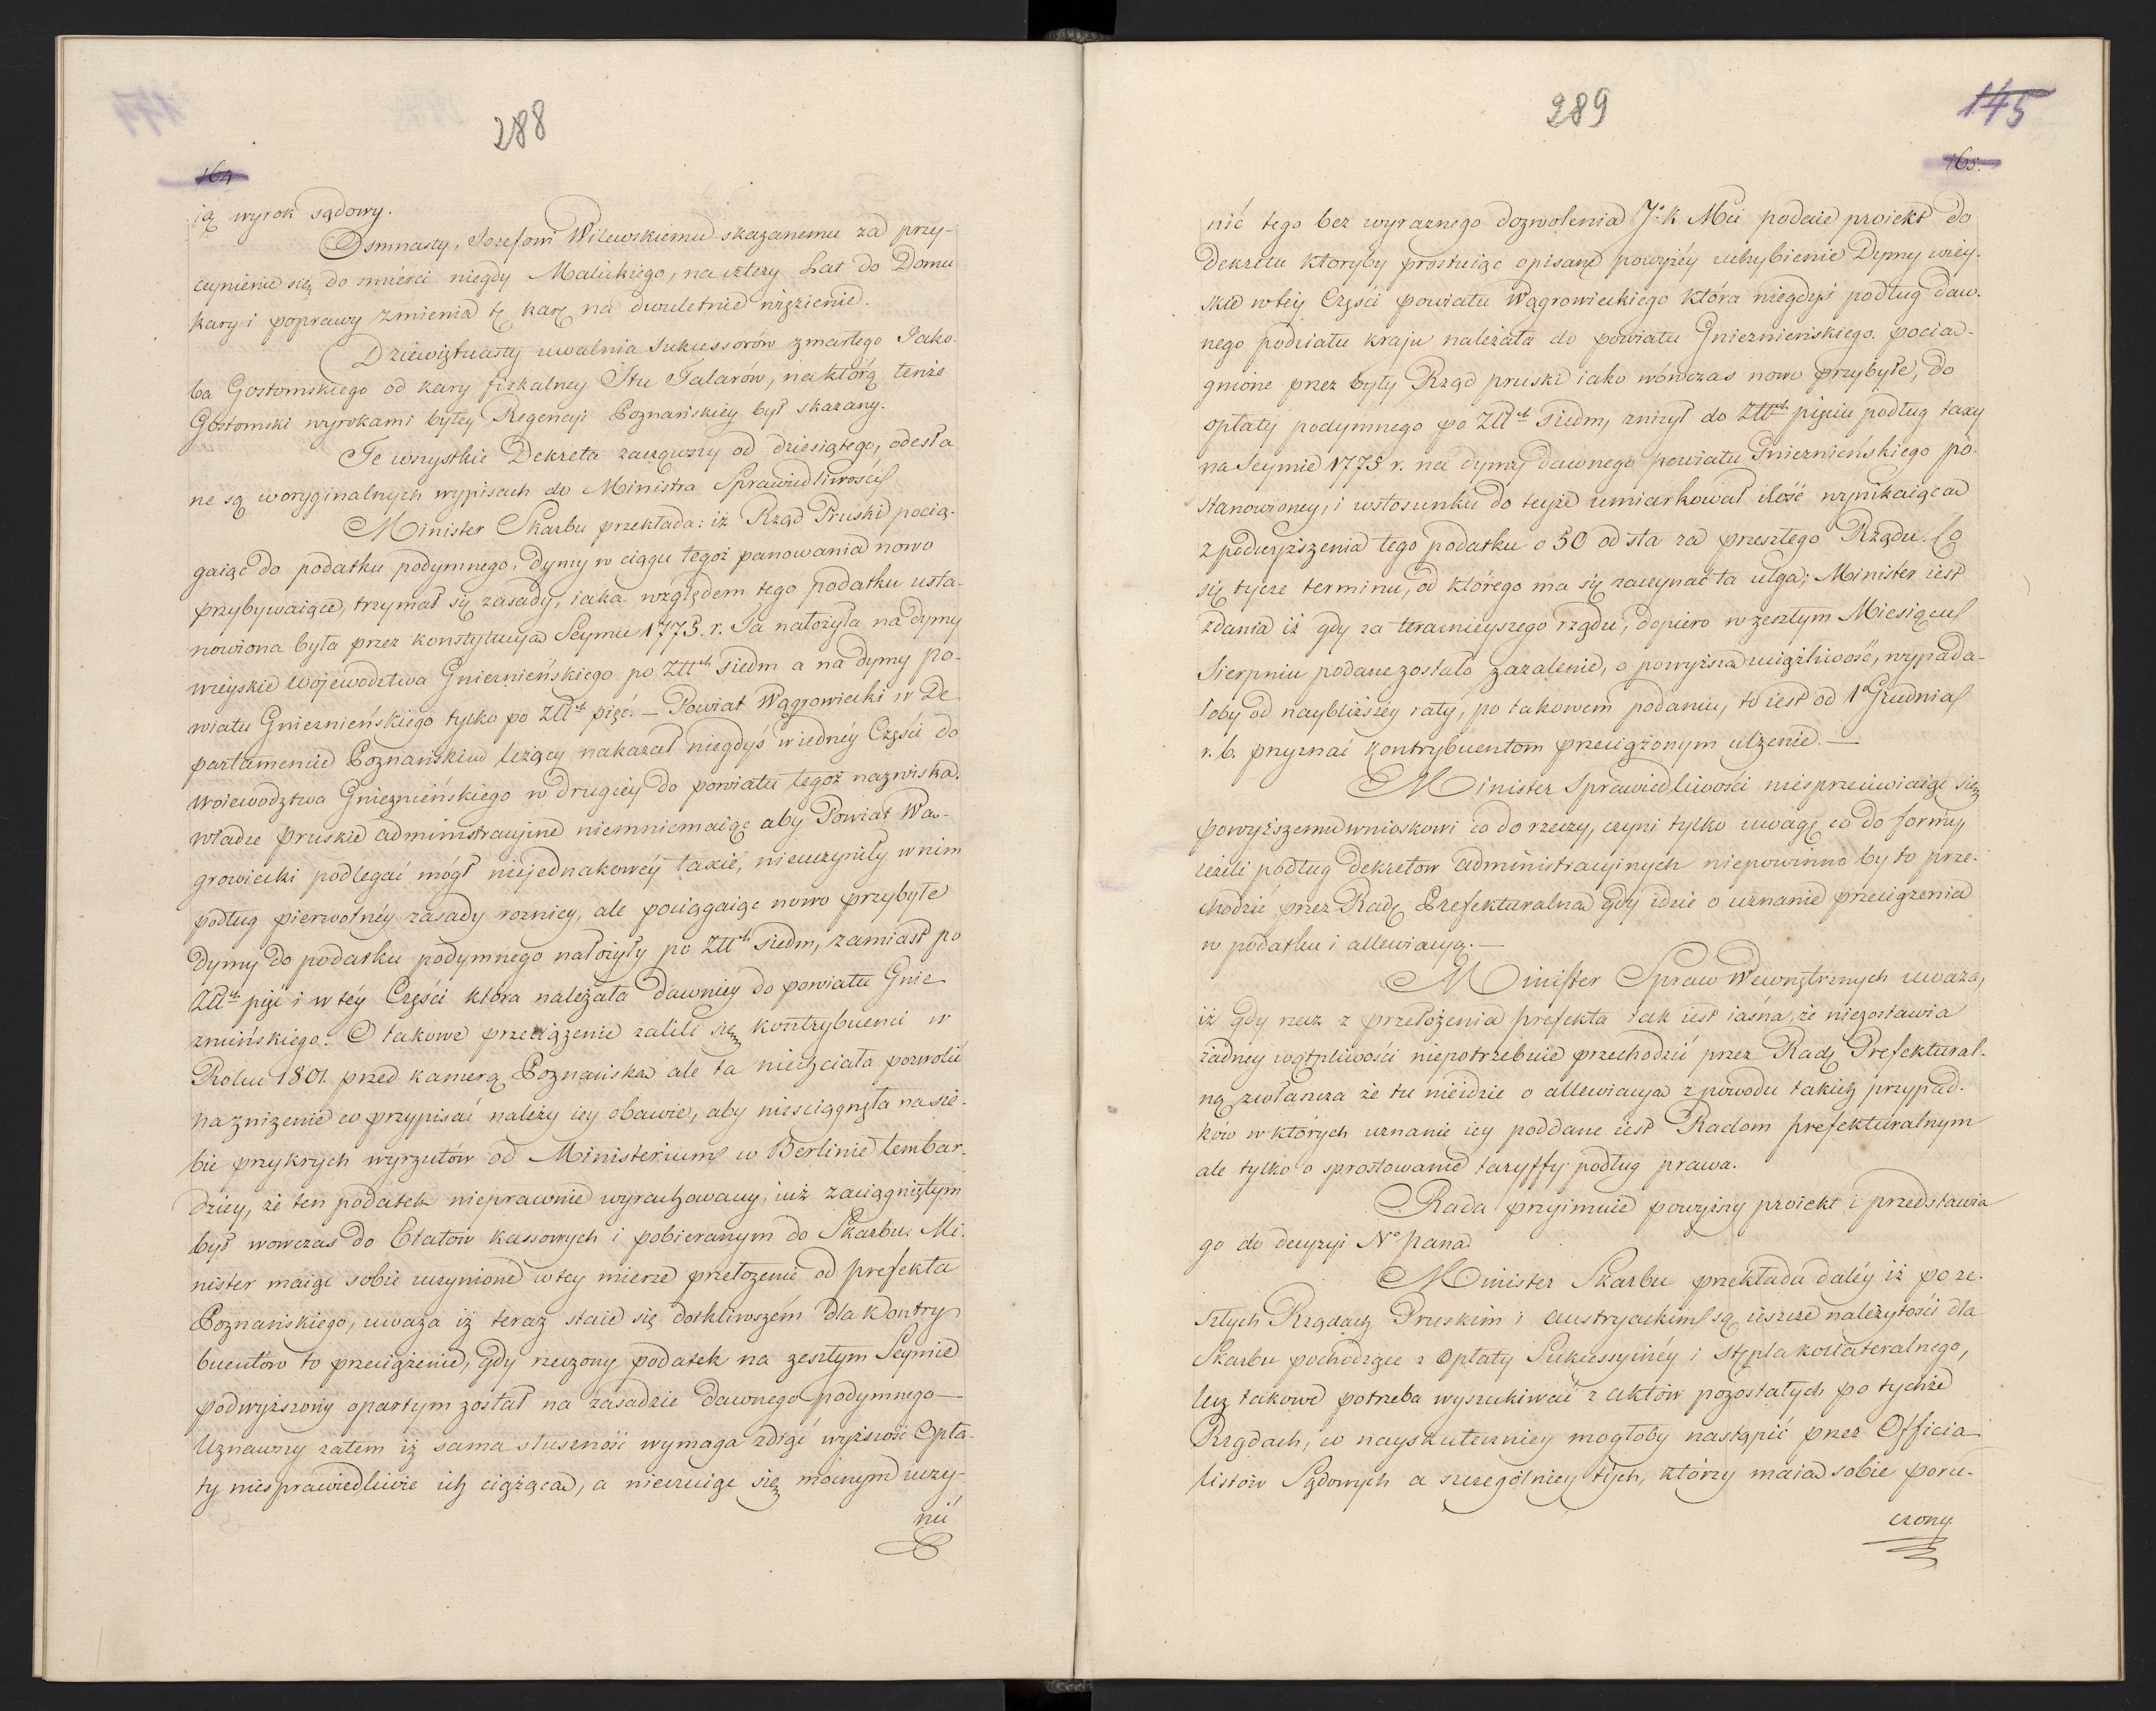 288
164
ią wyrok sądowy.
Osmnasty, Jozefowi Wilewskiemu skazanemu za przy-
czynienie się do smierci niegdy Malickiego, na cztery Lat do Domu
kary i poprawy zmienia tę karę na dwuletnie więzienie.
Dziewiętnasty uwalnia Sukcessorów zmarłego Jako-
ba Gostomskiego od kary fiskalney Stu Talarów, na którą tenże
Gostomski wyrokami byłey Regencyi Poznańskiey był skazany.
Te wszystkie Dekreta zacząwszy od dziesiątego, odesła
ne są w oryginalnych wypisach do Ministra Sprawiedliwości
Minister Skarbu przekłada: iż Rząd Pruski pocią-
gaiąc do podatku podymnego, dymy w ciągu tegoż panowania nowo
przybywaiące, trzymał się zasady, iaka względem tego podatku usta-
nowiona była przez konstytucyą Seymu 1775. r. Ta nałożyła na dymy
wieyskie Wojewodztwa Gnieznieńskiego po Złłch siedm a na dymy po-
wiatu Gnieznieńskiego tylko po Złłch pięć. — Powiat Wągrowiecki w De
partamencie Poznańskim leżący nakazał niegdyś w iedney Części do
Woiewodztwa Gnieznieńskiego w drugiey do powiatu tegoż nazwiska.
Władze pruskie administracyine niemniemaiąc aby Powiat Wą-
growiecki podlegać mógł niejednakowéy taxie, nieuczyniły w nim
podług pierwotnéy zasady roznicy, ale pociągaiąc nowo przybyłe
Dymy do podatku podymnego nałożyły po Złłch siedm, zamiast po
Złłch pięć i w téy Części ktora należała dawniey do powiatu Gnie
znieńskiego. O takowe przeciążenie żalili się kontrybuenci w
Roku 1801. przed kamerą Poznańską ale ta niechciała pozwolić
na zniżenie co przypisać należy iey obawie, aby niesciągnęła na sie-
bie przykrych wyrzutów od Ministerium w Berlinie tembar-
dziey, że ten podatek nieprawnie wyrachowany, iuż zaciągniętym
był wowczas do Etatów kassowych i pobieranym do Skarbu. Mi-
nister maiąc sobie uczynione w tey mierze przełożenie od prefekta
Poznańskiego, uważa iż teraz staie się dotkliwszém dla Kontry
buentów to przeciążenie, gdy rzeczony podatek na zeszłym Seymie
podwyższony opartym został na zasadzie dawnego podymnego —
Uznawszy zatém iż sama słuszność wymaga zdiąć wyższość Opła-
ty niesprawiedliwie ich ciążącą, a nieczuiąc się mocnym uczy-
nić
289
145
165.
nić tego bez wyraznego dozwolenia J. K Mci podaie proiekt do
Dekretu ktoryby prostuiąc opisane powyżéy uchybienie Dymy wiey-
skie w téy Części powiatu Wągrowieckiego która niegdyś podług daw-
nego podziatu kraju należała do powiatu Gnieznieńskiego. pocią-
gnione przez były Rząd pruski iako wówczas nowo przybyłe, do
opłaty podymnego po Złłch siedm, zniżył do Złłch pięciu podług taxy
na Seymie 1775 r. na dymy dawnego powiatu Gnieznieńskiego po-
stanowioney, i w stosunku do teyże umiarkował ilość wynikaiącą
z podwyższenia tego podatku o 50 od sta za przeszłego Rządu. Co
się tycze terminu, od którego ma się zaczynać ta ulga; Minister iest
zdania iż gdy za teraznieyszego rządu, dopiero w zeszłym Miesiącu
Sierpniu podane zostało zażalenie, o powyższą uciążliwość, wypada-
łoby od naybliższéy raty, po takowem podaniu, to iest od 1o Grudnia
r. b. przyznać kontrybuentom przeciążonym ulżenie. —
Minister Sprawiedliwości niesprzeciwiaiąc się
powyższemu wnioskowi co do rzeczy, czyni tylko uwagę co do formy,
ieżeli podług dekretow administracyinych niepowinno by to prze-
chodzić przez Radę Prefekturalną gdy idzie o uznanie przeciążenia
w podatku i allewiacyą. —
Minister Spraw Wewnętrznych uważa,
iż gdy rzecz z przełożenia prefekta tak iest iasna, że niezostawia
żadney wątpliwości niepotrzebuie przechodzić przez Radę Prefektural-
ną zwłaszcza że tu nieidzie o allewiacyą z powodu takich przypad-
ków w których uznanie iey poddane iest Radom prefekturalnym
ale tylko o sprostowanie taryffy podług prawa.
Rada przyimuie powyższy proiekt i przedstawia
go do decyzyi No Pana
Minister Skarbu przekłada daléy iż po ze-
szłych Rządach Pruskim i Austryackim są ieszcze należytości dla
Skarbu pochodzące z Opłaty Sukcessyinéy i Stępla kollateralnego,
lecz takowe potrzeba wyszukiwać z aktów pozostałych po tychże
Rządach, co nayskuteczniey mogłoby nastąpić przez Officia
listów Sądowych a szczególniey tych, którzy maią sobie poru-
czony.